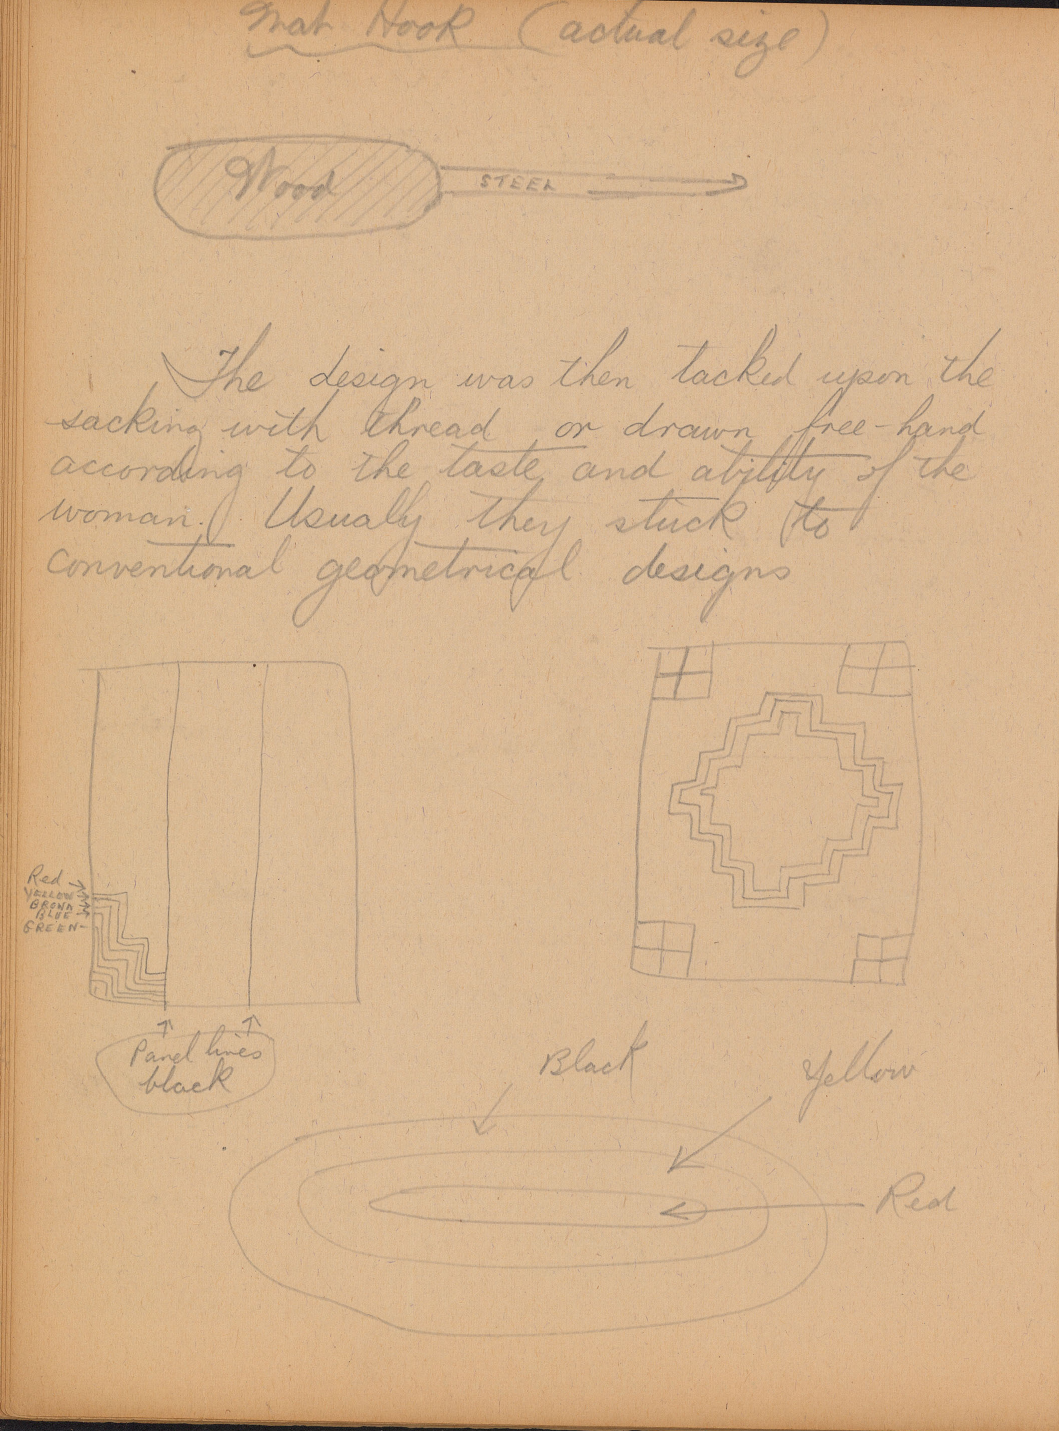 Mat Hook (actual size)
Wood
STEEL
The design was then tacked upon the
sacking with thread or drawn free-hand
according to the taste and ability of the
woman. Usually they stuck to
conventional geometrical designs
Red
YELLOW
BROWN
BLUE
GREEN
Panel lines
black
Black
Yellow
Red